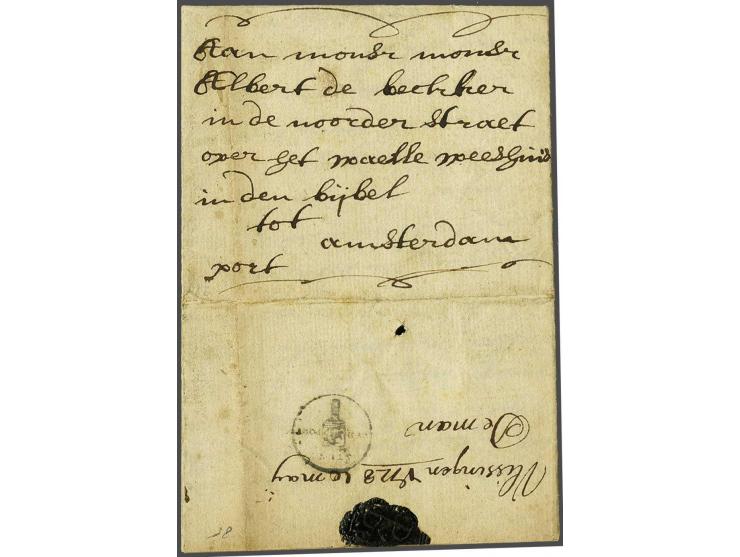 Aan monsr monsr
Albert de beckker
in de noorder straet
over het waelle weeshuis
in den bijbel
tot
amsterdam
port
De man
Vlissingen 1728 10 may
38